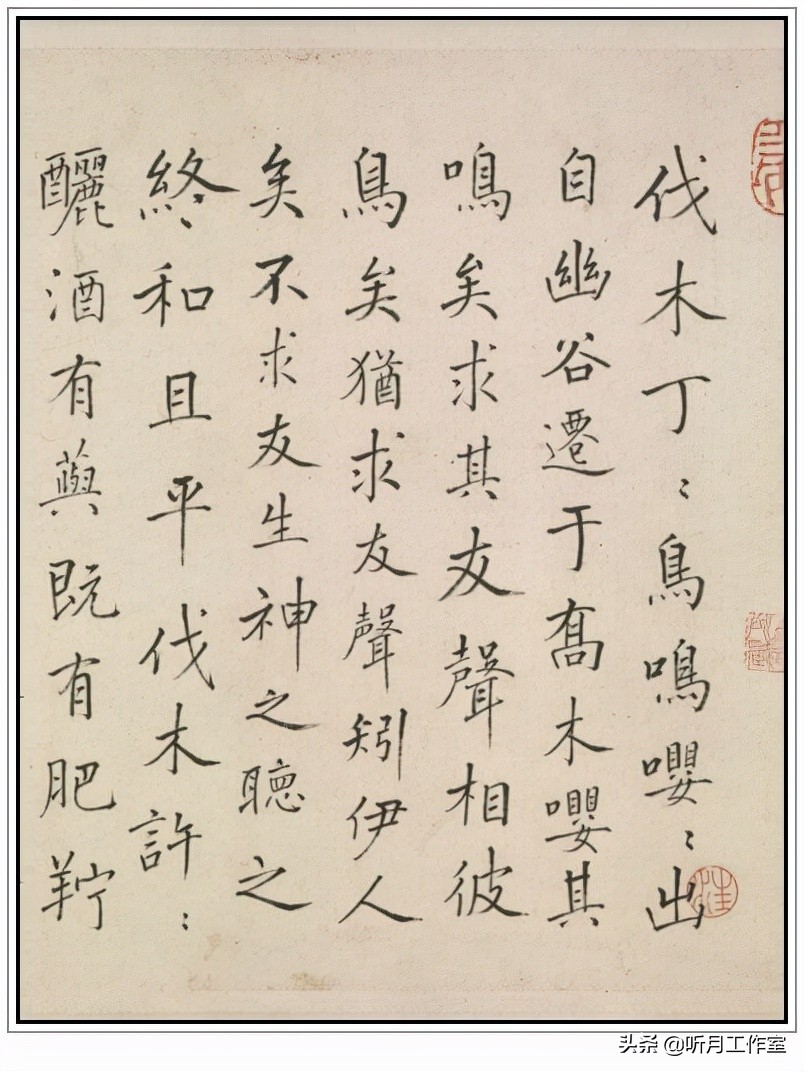 伐木丁〻鳥鳴嚶〻出
自幽谷遷于喬木嚶其
鳴矣求其友聲相彼
鳥矣猶求友聲矧伊人
矣不求友生神之聽之
終和且平伐木許〻
釃酒有藇既有肥羜
头条 @听月工作室